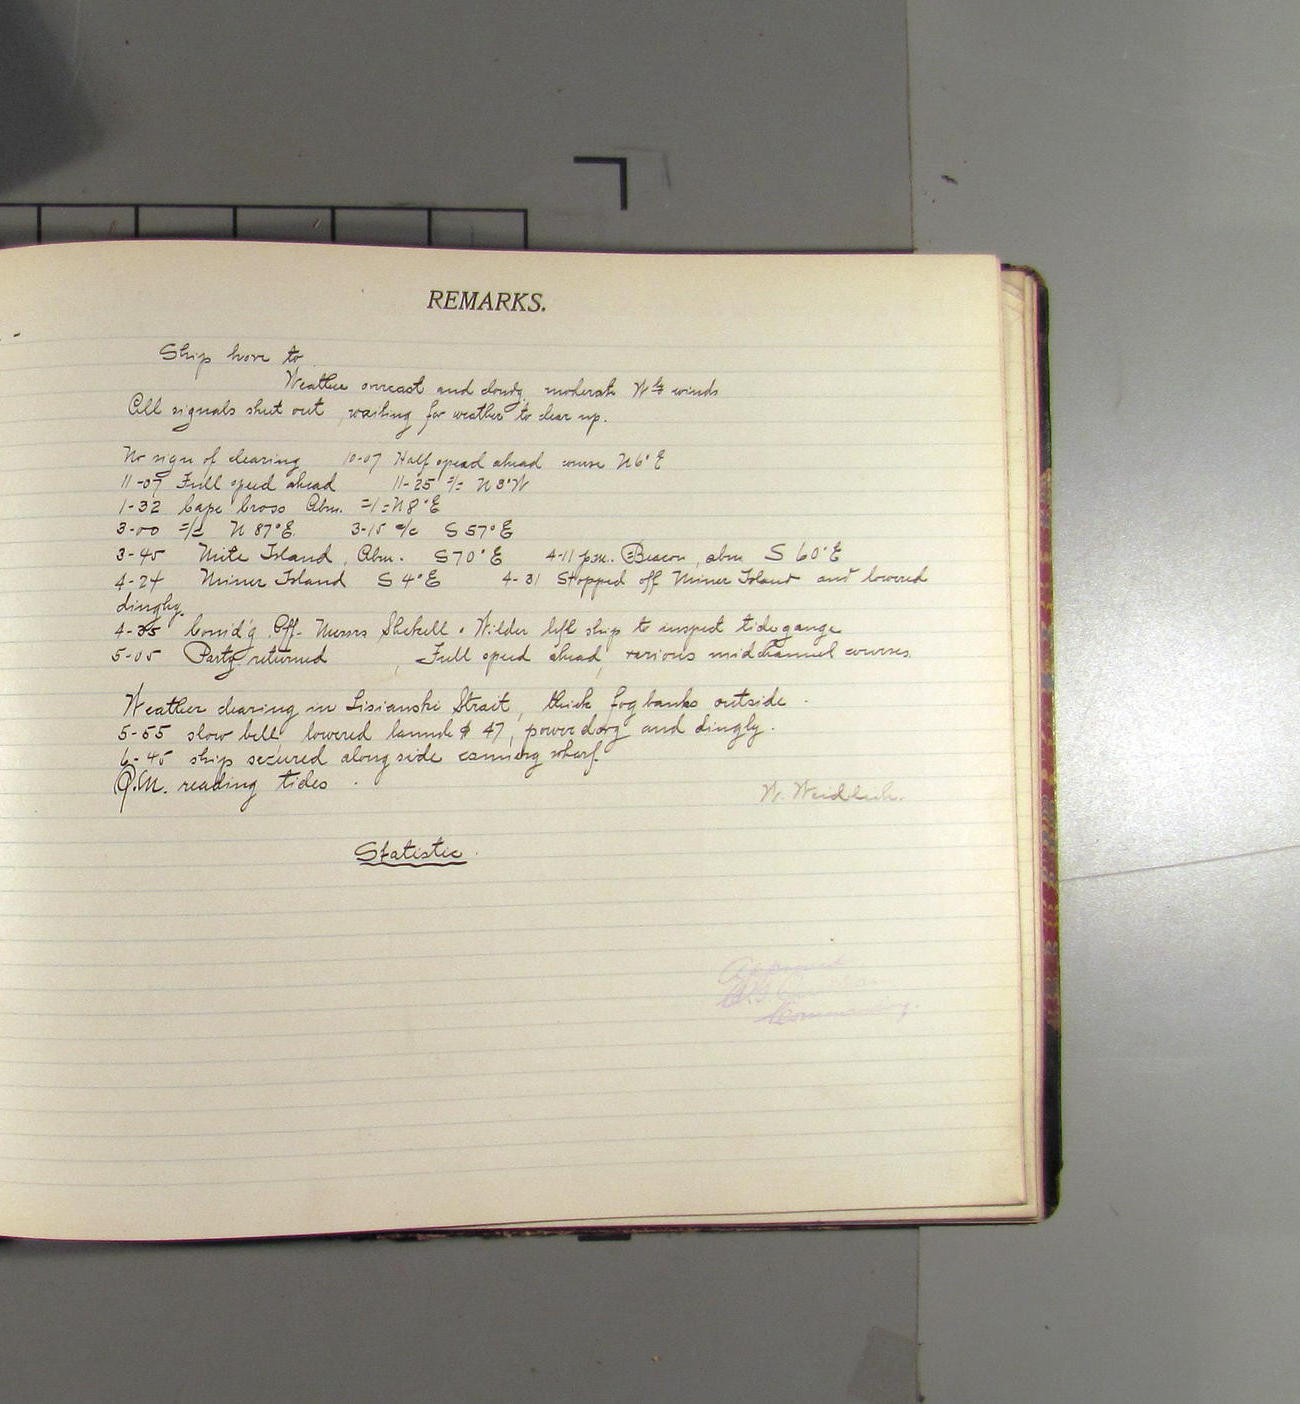 REMARKS.
Ship hove to
Weather overcast and cloudy, moderate Wly winds
All signals shut out, waiting for weather to clear up.
No sign of clearing 10-07 Half speed ahead course N 6° E
11-07 Full speed ahead 11-25 c/c N 3° W
1-32 Cape Cross Abm. c/c N 8° E
3-00 c/c N 87° E. 3-15 c/c S 57° E
3-45 Mite Island, Abm. S 70° E 4-11 p.m. Beacon, abm S 60° E
4-24 Miner Island S 4° E 4-31 Stopped off Miner Island and lowered
dinghy.
4-35 Comd'g Off. Messrs Shekell & Wilder left ship to inspect tide gauge
5-05 Party returned, Full speed ahead, various mid channel courses.
Weather clearing in Lisianski Strait, thick fog banks outside.
5-55 slow bell, lowered launch # 47, power dory and dinghy.
6-45 ship secured alongside cannery wharf.
Q.M. reading tides.
W. Weidlich.
Statistic.
Approved
Commanding.